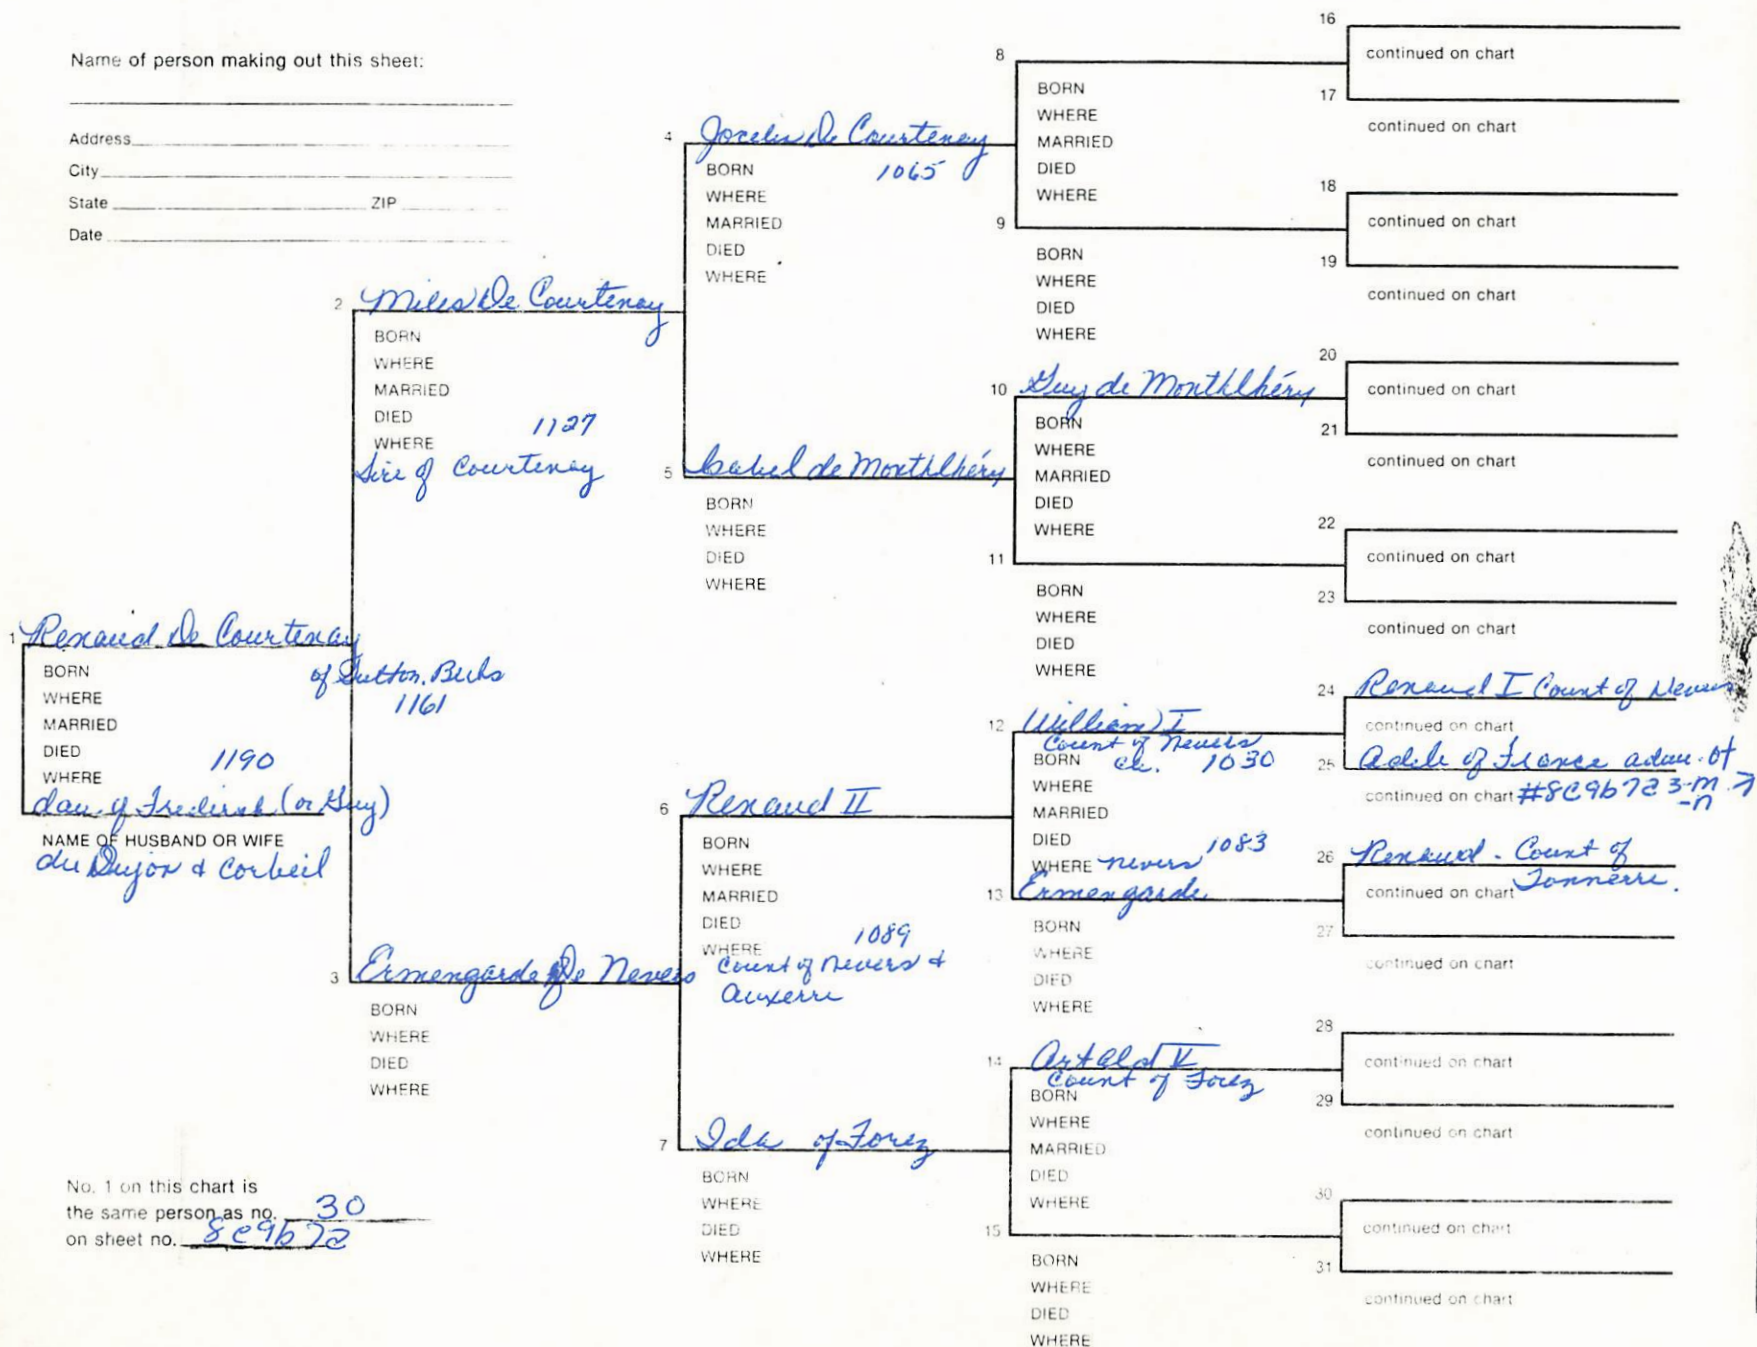 Name of person making out this sheet:
Address
City
State ZIP
Date
1 Renaud De Courtenay
of Sutton. Bucks
1161
BORN
WHERE
MARRIED
DIED 1190
WHERE
dau. of Frederick (or Guy)
NAME OF HUSBAND OR WIFE
du Dujon & Corbeil
2 Miles De Courtenay
BORN
WHERE
MARRIED
DIED
WHERE 1127
Sire of Courtenay
3 Ermengarde De Nevers
BORN
WHERE
DIED
WHERE
4 Jocelin De Courtenay
BORN 1065
WHERE
MARRIED
DIED
WHERE
5 Isabel de Monthlhéry
BORN
WHERE
DIED
WHERE
6 Renaud II
BORN
WHERE
MARRIED
DIED
WHERE 1089
Count of Nevers &
Auxerre
7 Ida of Forez
BORN
WHERE
DIED
WHERE
8
BORN
WHERE
MARRIED
DIED
WHERE
9
BORN
WHERE
DIED
WHERE
10 Guy de Monthlhéry
BORN
WHERE
MARRIED
DIED
WHERE
11
BORN
WHERE
DIED
WHERE
12 William I
Count of Nevers
BORN 1030
WHERE
MARRIED
DIED 1083
WHERE Nevers
13 Ermengarde
BORN
WHERE
DIED
WHERE
14 Artald V
Count of Forez
BORN
WHERE
MARRIED
DIED
WHERE
15
BORN
WHERE
DIED
WHERE
16
continued on chart
17
continued on chart
18
continued on chart
19
continued on chart
20
continued on chart
21
continued on chart
22
continued on chart
23
continued on chart
24 Renaud I Count of Nevers
continued on chart
25 Adele of France a dau. of
continued on chart #8C9b72 3-m
-n
26 Renaud - Count of
continued on chart Tonnerre.
27
continued on chart
28
continued on chart
29
continued on chart
30
continued on chart
31
continued on chart
No. 1 on this chart is
the same person as no. 30
on sheet no. 8C9b72